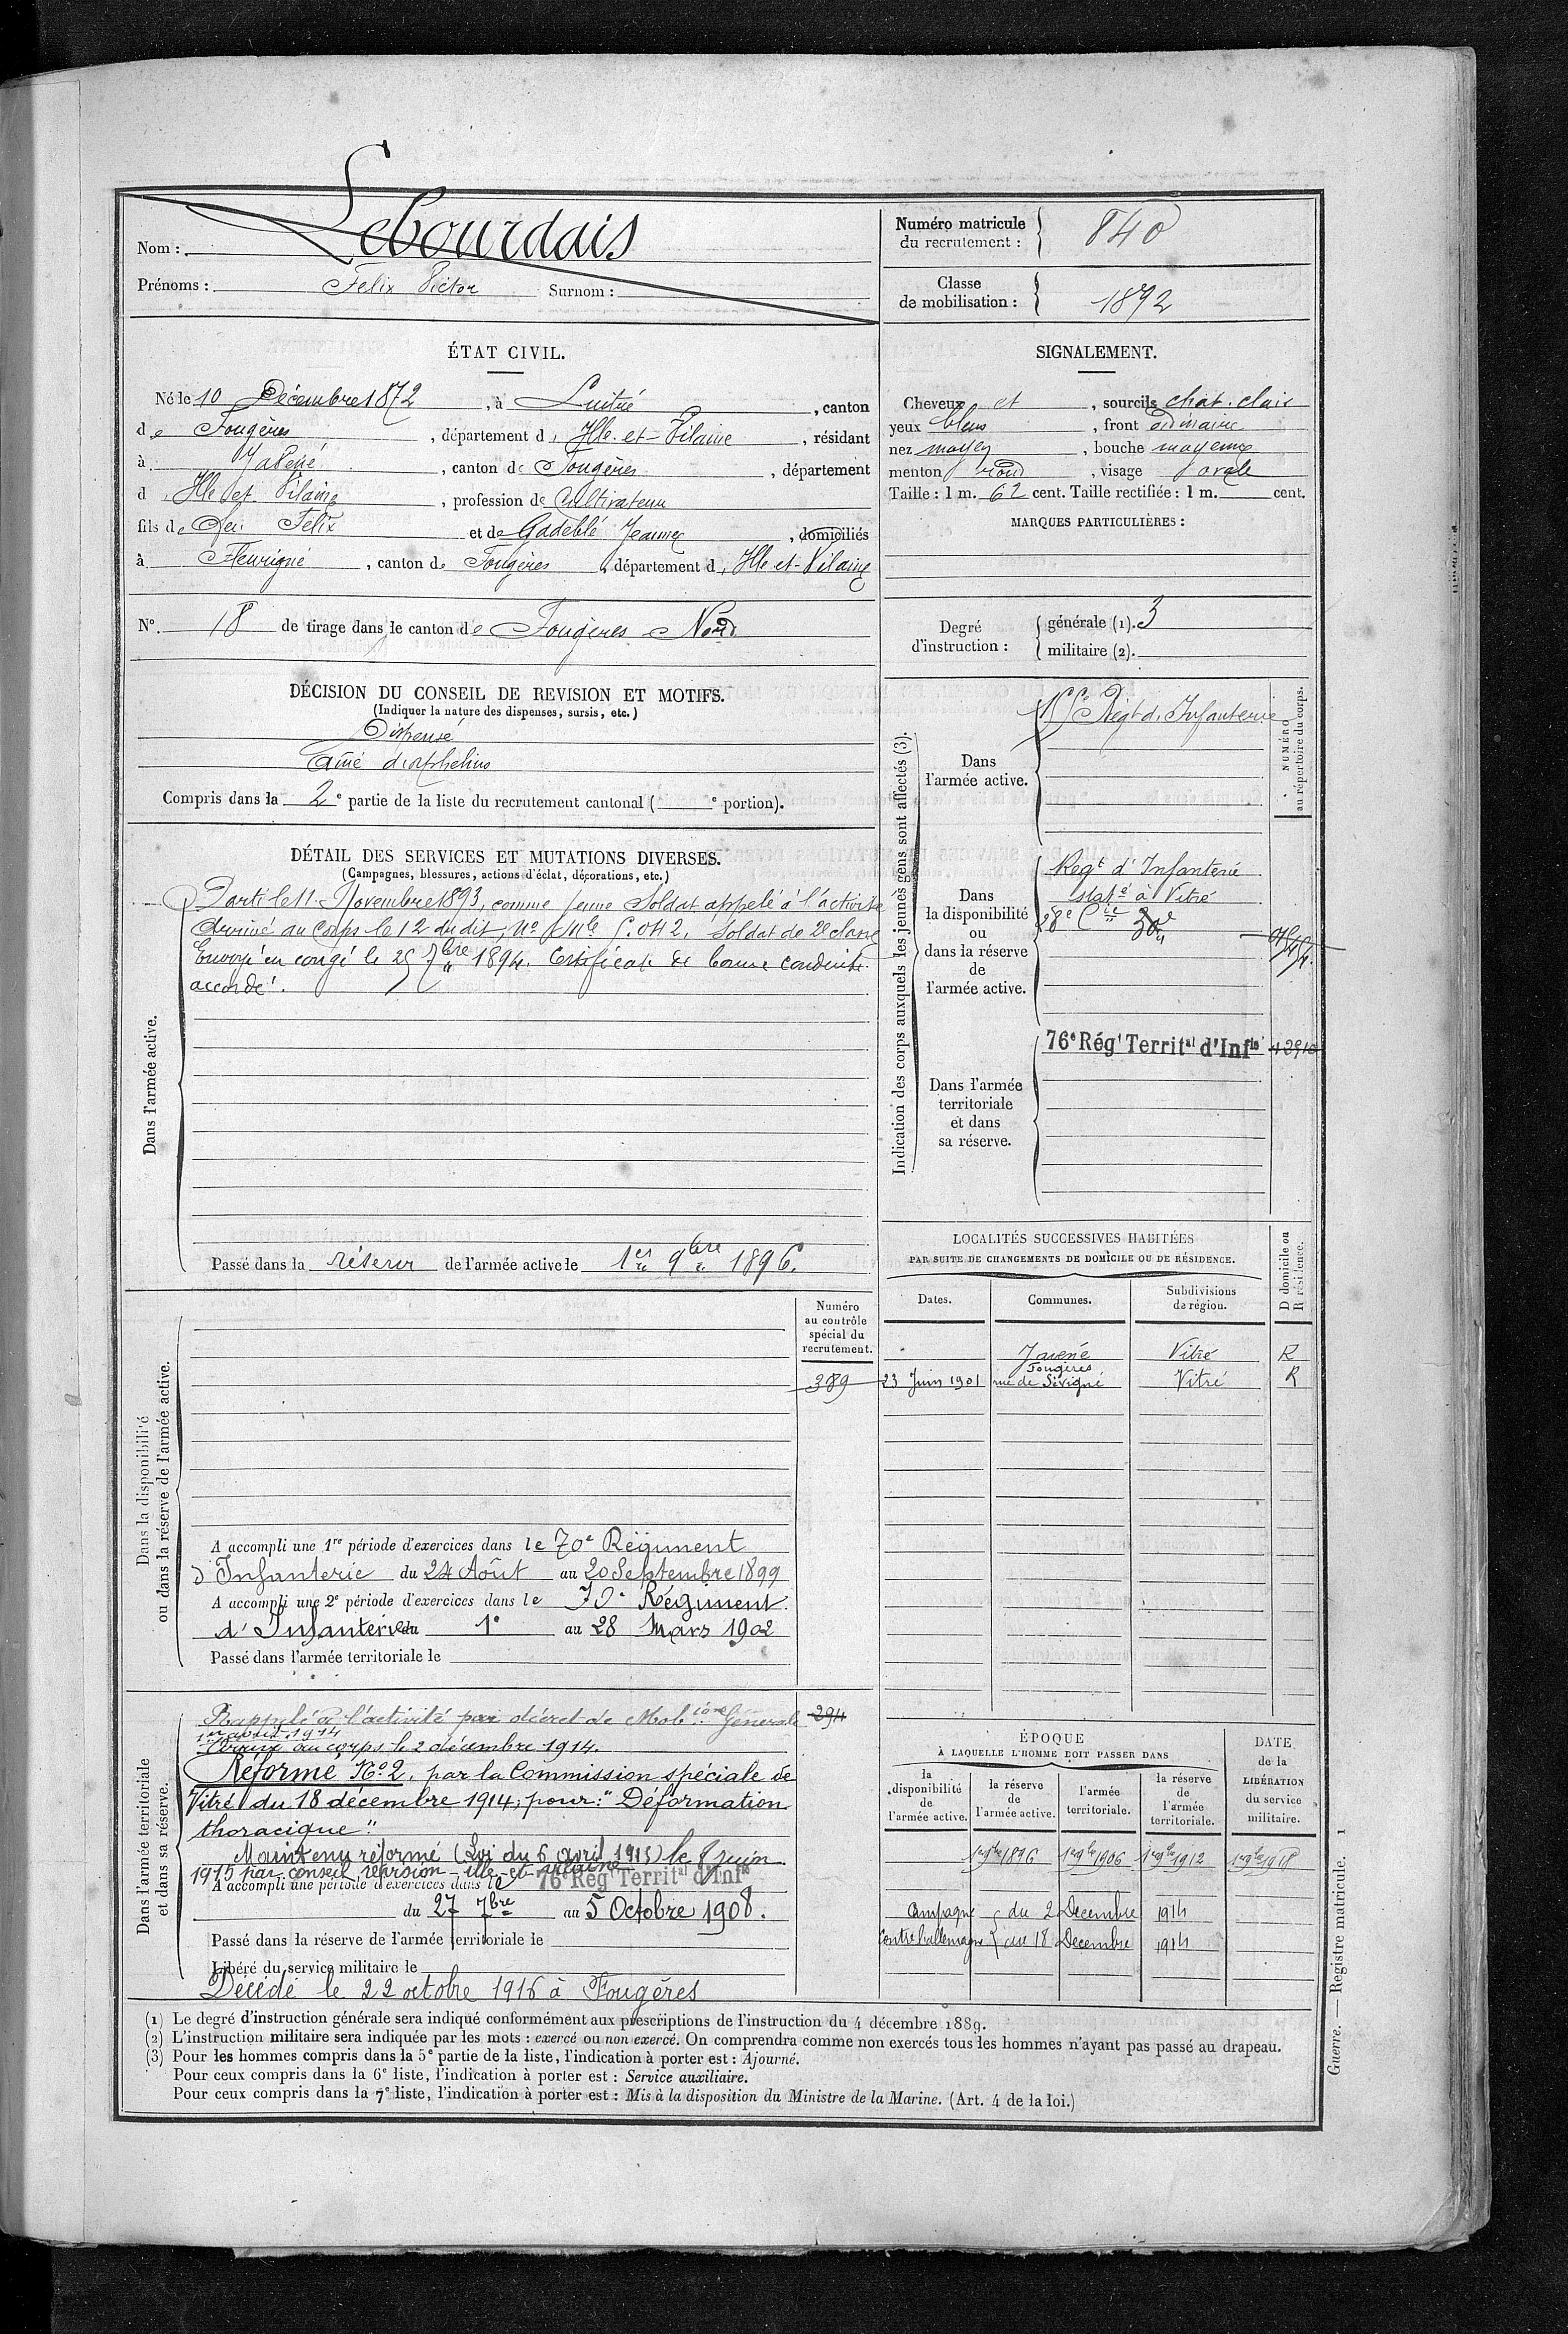 Nom : Lebourdais
Prénoms : Félix Victor Surnom :
Numéro matricule du recrutement : 840
Classe de mobilisation : 1892
ÉTAT CIVIL.
Né le 10 Décembre 1872, à Luitré, canton
de Fougères, département d'Ille-et-Vilaine, résidant
à Javené, canton de Fougères, département
d'Ille et Vilaine, profession de Cultivateur
fils de feu Félix et de Gadeblé Jeanne, domiciliés
à Fleurigné, canton de Fougères, département d'Ille et-Vilaine
N° 18 de tirage dans le canton de Fougères Nord
SIGNALEMENT.
Cheveux et, sourcils chat. clair
yeux bleus, front ordinaire
nez moyen, bouche moyenne
menton rond, visage ovale
Taille : 1 m. 62 cent. Taille rectifiée : 1 m. cent.
MARQUES PARTICULIÈRES :
Degré d'instruction : générale (1). 3
militaire (2).
DÉCISION DU CONSEIL DE REVISION ET MOTIFS.
(Indiquer la nature des dispenses, sursis, etc.)
Dispensé
Ainé d'orphelins
Compris dans la 2e partie de la liste du recrutement cantonal ( e portion).
DÉTAIL DES SERVICES ET MUTATIONS DIVERSES.
(Campagnes, blessures, actions d'éclat, décorations, etc.)
Dans l'armée active.
Parti le 11 Novembre 1893, comme jeune Soldat appelé à l'activité
Arrivé au Corps le 12 du dit, No Mle 5.042. Soldat de 2e classe
Envoyé en congé le 25 7bre 1894. Certificat de bonne conduite
accordé.
Passé dans la réserve de l'armée active le 1er 9bre 1896.
Indication des corps auxquels les jeunes gens sont affectés (3).
NUMÉRO au répertoire du corps.
Dans l'armée active.
Régt d'Infanterie
Dans la disponibilité ou dans la réserve de l'armée active.
Regt d'Infanterie
statné à Vitré
28e Cie
Dans l'armée territoriale et dans sa réserve.
76e Régt Territal d'Infie
Dans la disponibilité ou dans la réserve de l'armée active.
Numéro au contrôle spécial du recrutement.
389
A accompli une 1re période d'exercices dans le 70e Régiment
d'Infanterie du 24 Août au 20 Septembre 1899
A accompli une 2e période d'exercices dans le 70e Régiment
d'Infanterie du 1e au 28 Mars 1902
Passé dans l'armée territoriale le
LOCALITÉS SUCCESSIVES HABITÉES
PAR SUITE DE CHANGEMENTS DE DOMICILE OU DE RÉSIDENCE.
Dates. Communes. Subdivisions de région. D domicile ou R résidence.
Javené Vitré R
23 Juin 1901 Fougères rue de Sévigné Vitré R
Dans l'armée territoriale et dans sa réserve.
Rappelé à l'activité par décret de Mob.ion Générale 294
1er août 1914
Arrivé au corps le 2 décembre 1914.
Réformé No 2, par la Commission spéciale de
Vitré du 18 décembre 1914, pour : "Déformation
thoracique"
Maintenu réformé (Loi du 6 avril 1915) le 8 juin
1915 par conseil révision - ille-et-vilaine
A accompli une période d'exercices dans le 76e Régt Territal d'Infie
du 27 7bre au 5 Octobre 1908.
Passé dans la réserve de l'armée territoriale le
Libéré du service militaire le
Décédé le 22 octobre 1916 à Fougères
ÉPOQUE
À LAQUELLE L'HOMME DOIT PASSER DANS
la disponibilité de l'armée active. la réserve de l'armée active. l'armée territoriale. la réserve de l'armée territoriale.
DATE de la LIBÉRATION du service militaire.
1er 9bre 1896 1er 9bre 1906 1er 9bre 1912 1er 9bre 1918
Campagne du 2 Decembre 1914
Contre l'allemagne au 18 Decembre 1914
(1) Le degré d'instruction générale sera indiqué conformément aux prescriptions de l'instruction du 4 décembre 1889.
(2) L'instruction militaire sera indiquée par les mots : exercé ou non exercé. On comprendra comme non exercés tous les hommes n'ayant pas passé au drapeau.
(3) Pour les hommes compris dans la 5e partie de la liste, l'indication à porter est : Ajourné.
Pour ceux compris dans la 6e liste, l'indication à porter est : Service auxiliaire.
Pour ceux compris dans la 7e liste, l'indication à porter est : Mis à la disposition du Ministre de la Marine. (Art. 4 de la loi.)
Guerre. — Registre matricule. 1